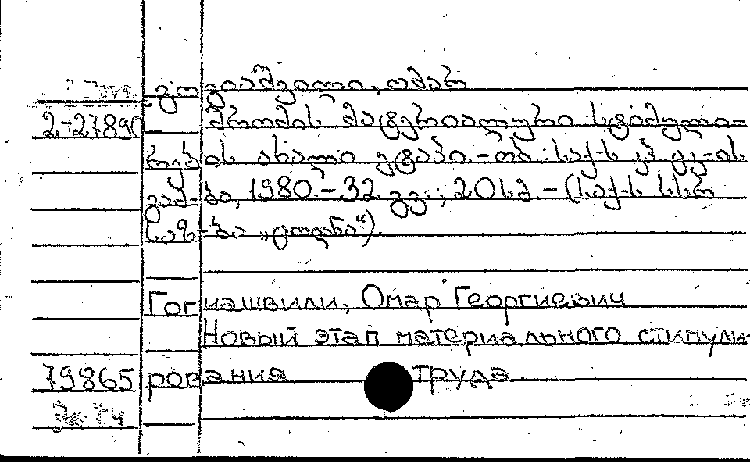 გოგიაშვილი, ომარ
2-27890 შრომის მატერიალური სტიმული-
რების ახალი ეტაპი.-თბ.: საქ-ს კპ ცკ-ის
გამ-ბა, 1980.-32 გვ.; 20სმ.-(საქ-ს სსრ
საზ-ბა „ცოდნა“).
Гогиашвили, Омар Георгиевич
Новый этап материального стимули-
79865 рования труда